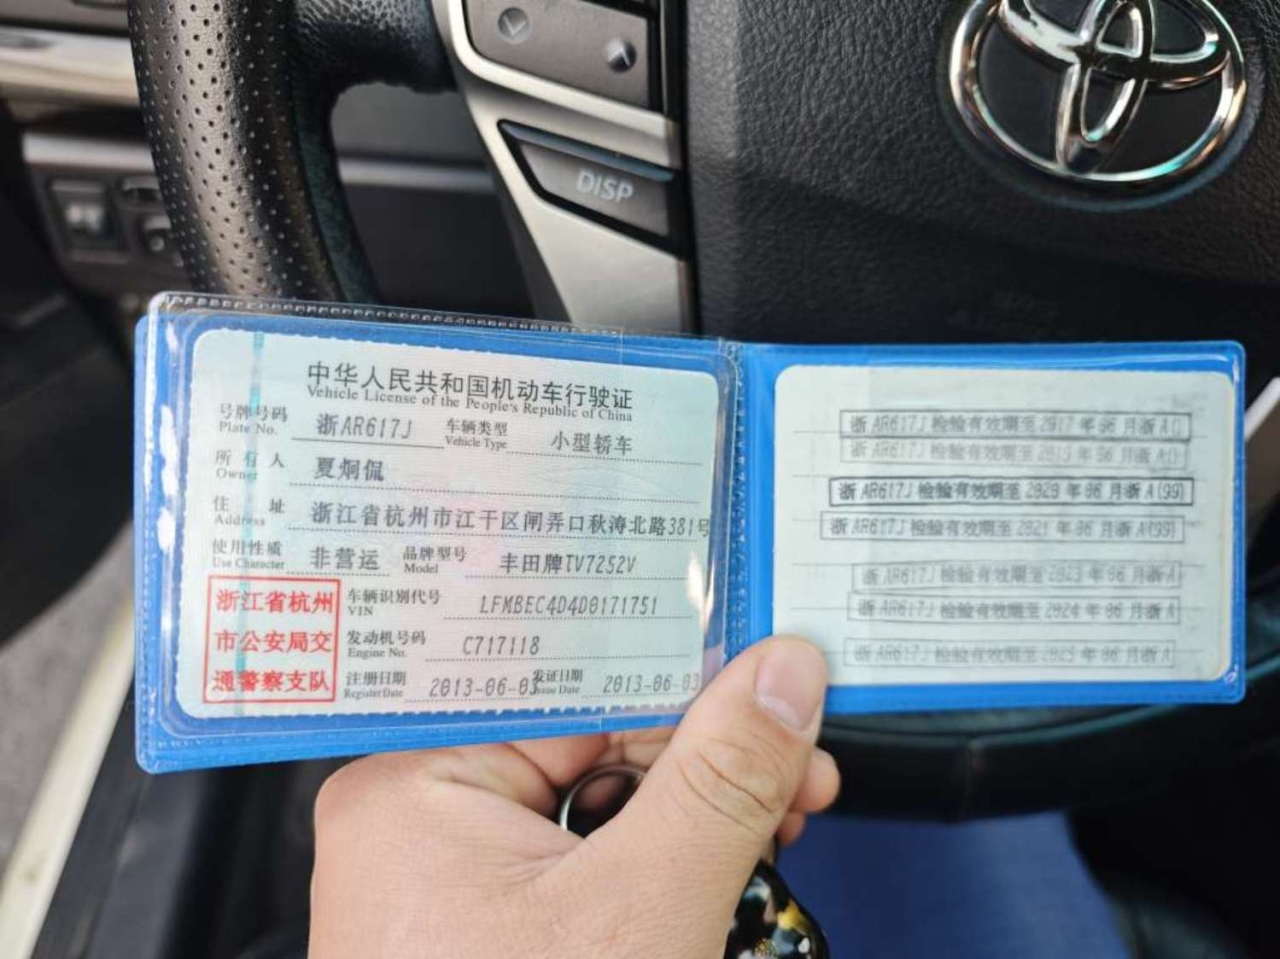 DISP
中华人民共和国机动车行驶证
Vehicle License of the People's Republic of China
号牌号码 浙AR617J 车辆类型 小型轿车
Plate No. Vehicle Type
所有人 夏炯侃
Owner
住址 浙江省杭州市江干区闸弄口秋涛北路381号
Address
使用性质 非营运 品牌型号 丰田牌TV7252V
Use Character Model
浙江省杭州
市公安局交
通警察支队
车辆识别代号 LFMBEC4D4D0171751
VIN
发动机号码 C717118
Engine No.
注册日期 2013-06-03 发证日期 2013-06-03
Register Date Issue Date
浙AR617J 检验有效期至2017年06月浙A()
浙AR617J 检验有效期至2019年06月浙A()
浙AR617J 检验有效期至2020年06月浙A(99)
浙AR617J 检验有效期至2021年06月浙A(99)
浙AR617J 检验有效期至2023年06月浙A
浙AR617J 检验有效期至2024年06月浙A
浙AR617J 检验有效期至2025年06月浙A